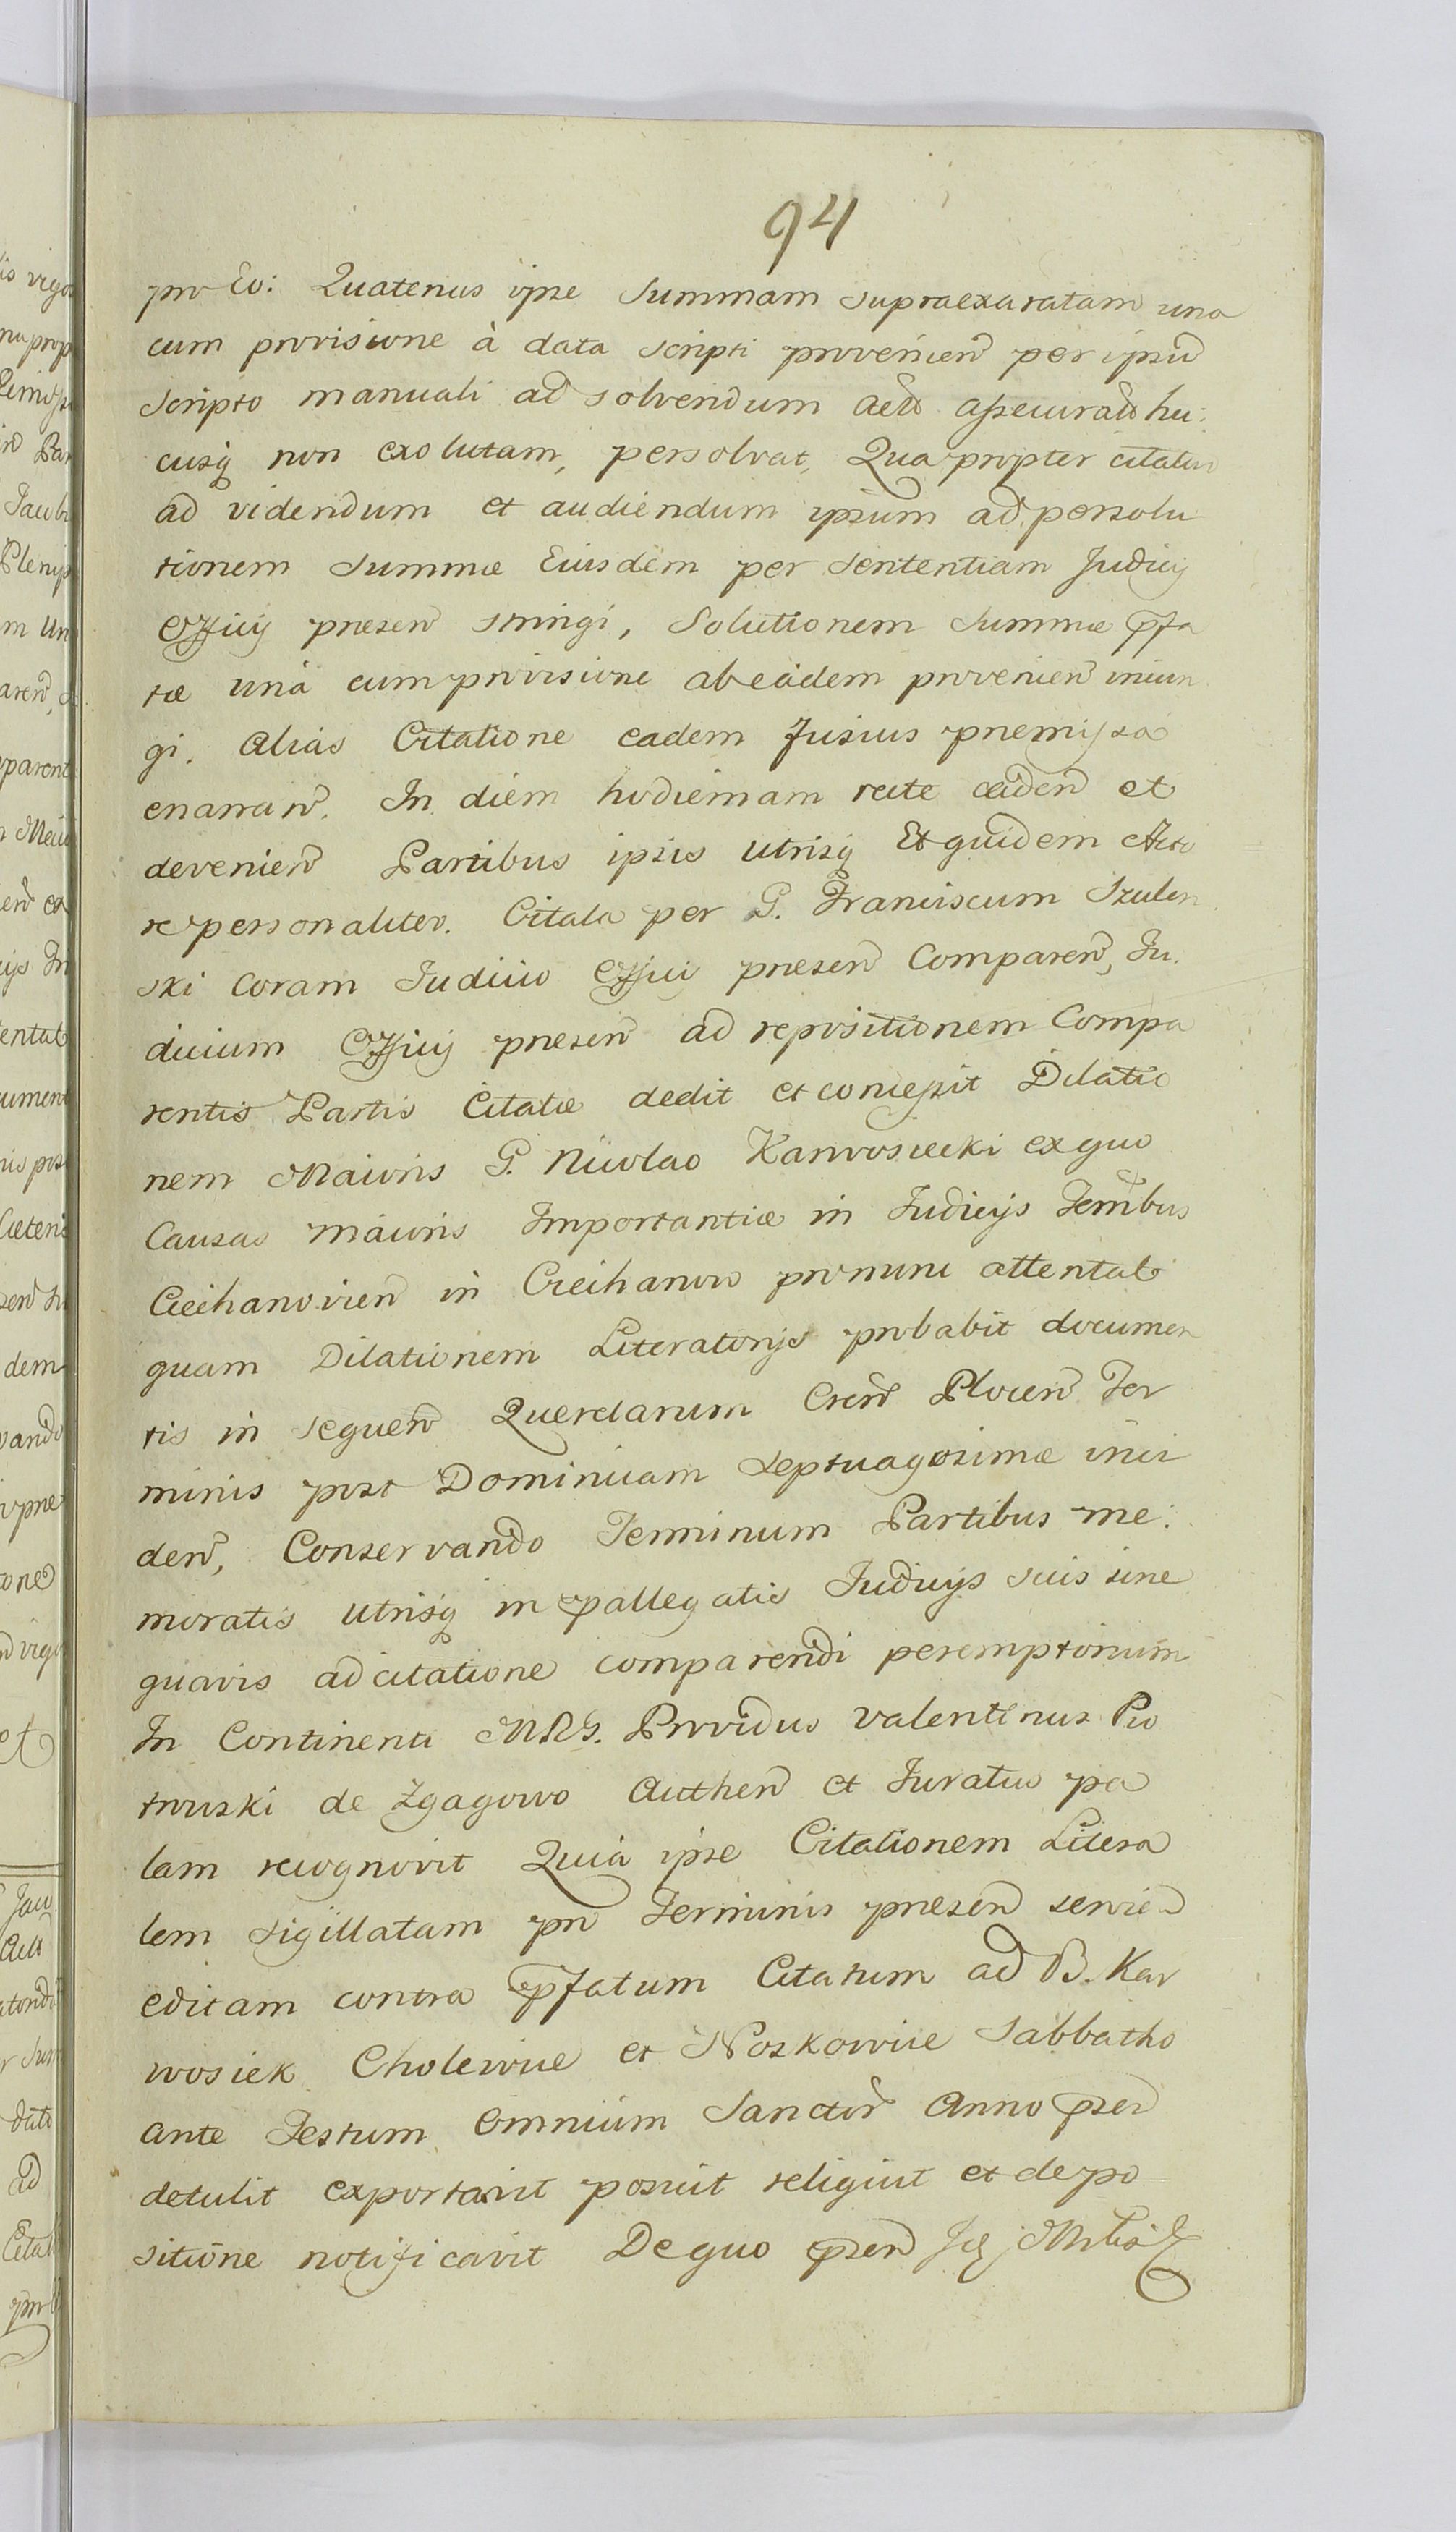 94
pro Eo: Quatenus ipse Summam supraexaratam una
cum provisione à data scripti provenien per ipsu
scripto manuali ad solvendum assecurat hu:
cusq non exolutam, persolvat, Qua propter citatur
ad videndum et audiendum ipsum ad persolu
tionem Summæ Eiusdem per Sententiam Judicij
Officij presen stringi, Solutionem Summæ pfa
tæ unà cum provisione ab eâdem provenien iniun
gi. Alias Citatione eadem fusius præmissa
enarran. In diem hodiernam recte caden et
devenien Partibus ipsis utrisq Et quidem Acto
re personaliter. Citata per G. Franciscum Szulen
ski Coram Judicio Officij presen Comparen, Ju.
dicium Officij presen ad repositionem Compa
rentis Partis Citatæ dedit et concessit Dilatio
nem Maioris G. Nicolao Karwosiecki ex quo
Causas maioris Importantiæ in Judicijs Terribus
Ciechanovien in Ciechanow pro nunc attentat
quam Dilationem Literatorijs probabit documen
tis in sequen Querelarum Cren Plocen Ter
minis post Dominicam Septuagesimæ inci
den, Conservando Terminum Partibus me:
moratis utrisq in pallegatis Judicijs suis sine
quavis adcitatione comparendi peremptorium
In Continenti MRG. Providus Valentinus Pio
trowski de Zgagowo Authen et Juratus pa
lam recognovit Quia ipse Citationem Litera
lem sigillatam pro Terminis presen servien
editam contra pfatum Citatum ad B. Kar
wosiek Cholewice et Noskowice Sabbatho
ante Festum Omnium Sanctor Anno psen
detulit exportavit posuit religiut et depo
sitione notificavit De quo psen